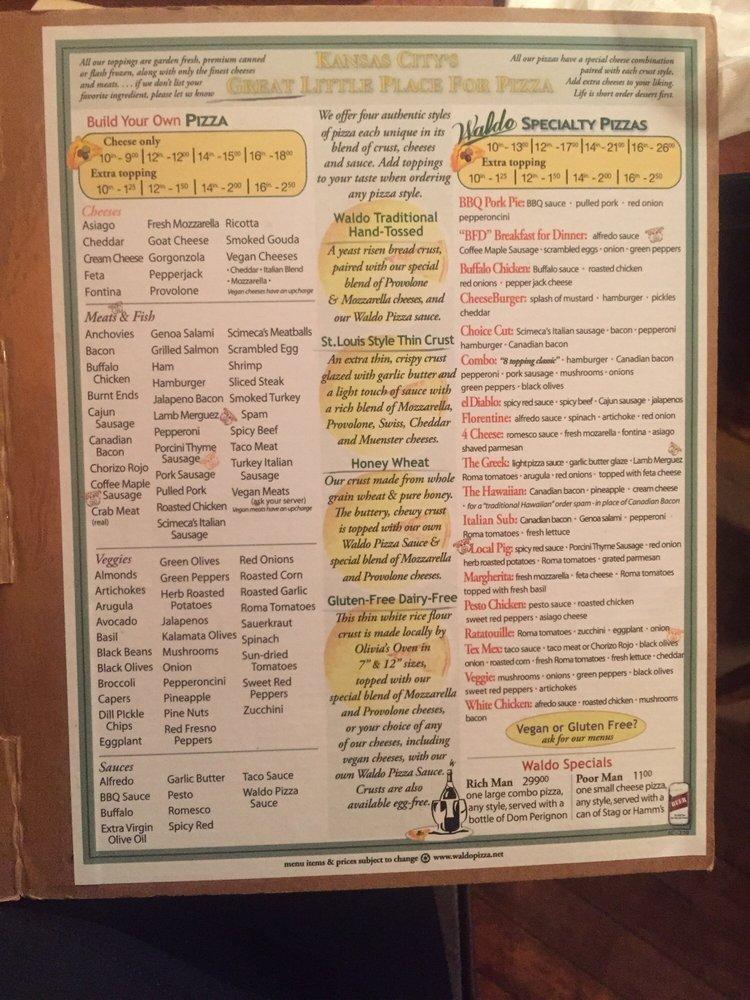 All our toppings are garden fresh, premium canned
or flash frozen, along with only the finest cheeses
and meats. . . . if we don't list your
favorite ingredient, please let us know
KANSAS CITY'S
GREAT LITTLE PLACE FOR PIZZA
All our pizzas have a special cheese combination
paired with each crust style.
Add extra cheeses to your liking.
Life is short order dessert first.
Build Your Own PIZZA
Cheese only
10in - 900 | 12in - 1200 | 14in - 1500 | 16in - 1800
Extra topping
10in - 125 | 12in - 150 | 14in - 200 | 16in - 250
Cheeses
Asiago
Cheddar
Cream Cheese
Feta
Fontina
Fresh Mozzarella
Goat Cheese
Gorgonzola
Pepperjack
Provolone
Ricotta
Smoked Gouda
Vegan Cheeses
• Cheddar • Italian Blend
• Mozzarella •
Vegan cheeses have an upcharge
Meats & Fish
Anchovies
Bacon
Buffalo
Chicken
Burnt Ends
Cajun
Sausage
Canadian
Bacon
Chorizo Rojo
Coffee Maple
Sausage
Crab Meat
(real)
Genoa Salami
Grilled Salmon
Ham
Hamburger
Jalapeno Bacon
Lamb Merguez
Pepperoni
Porcini Thyme
Sausage
Pork Sausage
Pulled Pork
Roasted Chicken
Scimeca's Italian
Sausage
Scimeca's Meatballs
Scrambled Egg
Shrimp
Sliced Steak
Smoked Turkey
Spam
Spicy Beef
Taco Meat
Turkey Italian
Sausage
Vegan Meats
(ask your server)
Vegan meats have an upcharge
Veggies
Almonds
Artichokes
Arugula
Avocado
Basil
Black Beans
Black Olives
Broccoli
Capers
Dill Pickle
Chips
Eggplant
Green Olives
Green Peppers
Herb Roasted
Potatoes
Jalapenos
Kalamata Olives
Mushrooms
Onion
Pepperoncini
Pineapple
Pine Nuts
Red Fresno
Peppers
Red Onions
Roasted Corn
Roasted Garlic
Roma Tomatoes
Sauerkraut
Spinach
Sun-dried
Tomatoes
Sweet Red
Peppers
Zucchini
Sauces
Alfredo
BBQ Sauce
Buffalo
Extra Virgin
Olive Oil
Garlic Butter
Pesto
Romesco
Spicy Red
Taco Sauce
Waldo Pizza
Sauce
We offer four authentic styles
of pizza each unique in its
blend of crust, cheeses
and sauce. Add toppings
to your taste when ordering
any pizza style.
Waldo Traditional
Hand-Tossed
A yeast risen bread crust,
paired with our special
blend of Provolone
& Mozzarella cheeses, and
our Waldo Pizza sauce.
St.Louis Style Thin Crust
An extra thin, crispy crust
glazed with garlic butter and
a light touch of sauce with
a rich blend of Mozzarella,
Provolone, Swiss, Cheddar
and Muenster cheeses.
Honey Wheat
Our crust made from whole
grain wheat & pure honey.
The buttery, chewy crust
is topped with our own
Waldo Pizza Sauce &
special blend of Mozzarella
and Provolone cheeses.
Gluten-Free Dairy-Free
This thin white rice flour
crust is made locally by
Olivia's Oven in
7" & 12" sizes,
topped with our
special blend of Mozzarella
and Provolone cheeses,
or your choice of any
of our cheeses, including
vegan cheeses, with our
own Waldo Pizza Sauce.
Crusts are also
available egg-free.
Waldo SPECIALTY PIZZAS
10in - 1300 | 12in - 1700 | 14in - 2100 | 16in - 2600
Extra topping
10in - 125 | 12in - 150 | 14in - 200 | 16in - 250
BBQ Pork Pie: BBQ sauce • pulled pork • red onion
pepperoncini
"BFD" Breakfast for Dinner: alfredo sauce
Coffee Maple Sausage • scrambled eggs • onion • green peppers
Buffalo Chicken: Buffalo sauce • roasted chicken
red onions • pepper jack cheese
CheeseBurger: splash of mustard • hamburger • pickles
cheddar
Choice Cut: Scimeca's Italian sausage • bacon • pepperoni
hamburger • Canadian bacon
Combo: "8 topping classic" • hamburger • Canadian bacon
pepperoni • pork sausage • mushrooms • onions
green peppers • black olives
el Diablo: spicy red sauce • spicy beef • Cajun sausage • jalapenos
Florentine: alfredo sauce • spinach • artichoke • red onion
4 Cheese: romesco sauce • fresh mozarella • fontina • asiago
shaved parmesan
The Greek: light pizza sauce • garlic butter glaze • Lamb Merguez
Roma tomatoes • arugula • red onions • topped with feta cheese
The Hawaiian: Canadian bacon • pineapple • cream cheese
- for a "traditional Hawaiian" order spam - in place of Canadian Bacon
Italian Sub: Canadian bacon • Genoa salami • pepperoni
Roma tomatoes • fresh lettuce
Local Pig: spicy red sauce • Porcini Thyme Sausage • red onion
herb roasted potatoes • Roma tomatoes • grated parmesan
Margherita: fresh mozzarella • feta cheese • Roma tomatoes
topped with fresh basil
Pesto Chicken: pesto sauce • roasted chicken
sweet red peppers • asiago cheese
Ratatouille: Roma tomatoes • zucchini • eggplant • onion
Tex Mex: taco sauce • taco meat or Chorizo Rojo • black olives
onion • roasted corn • fresh Roma tomatoes • fresh lettuce • cheddar
Veggie: mushrooms • onions • green peppers • black olives
sweet red peppers • artichokes
White Chicken: afredo sauce • roasted chicken • mushrooms
bacon
Vegan or Gluten Free?
ask for our menus
Waldo Specials
Rich Man 29900
one large combo pizza,
any style, served with a
bottle of Dom Perignon
Poor Man 1100
one small cheese pizza,
any style, served with a
can of Stag or Hamm's
BEER
menu items & prices subject to change www.waldopizza.net